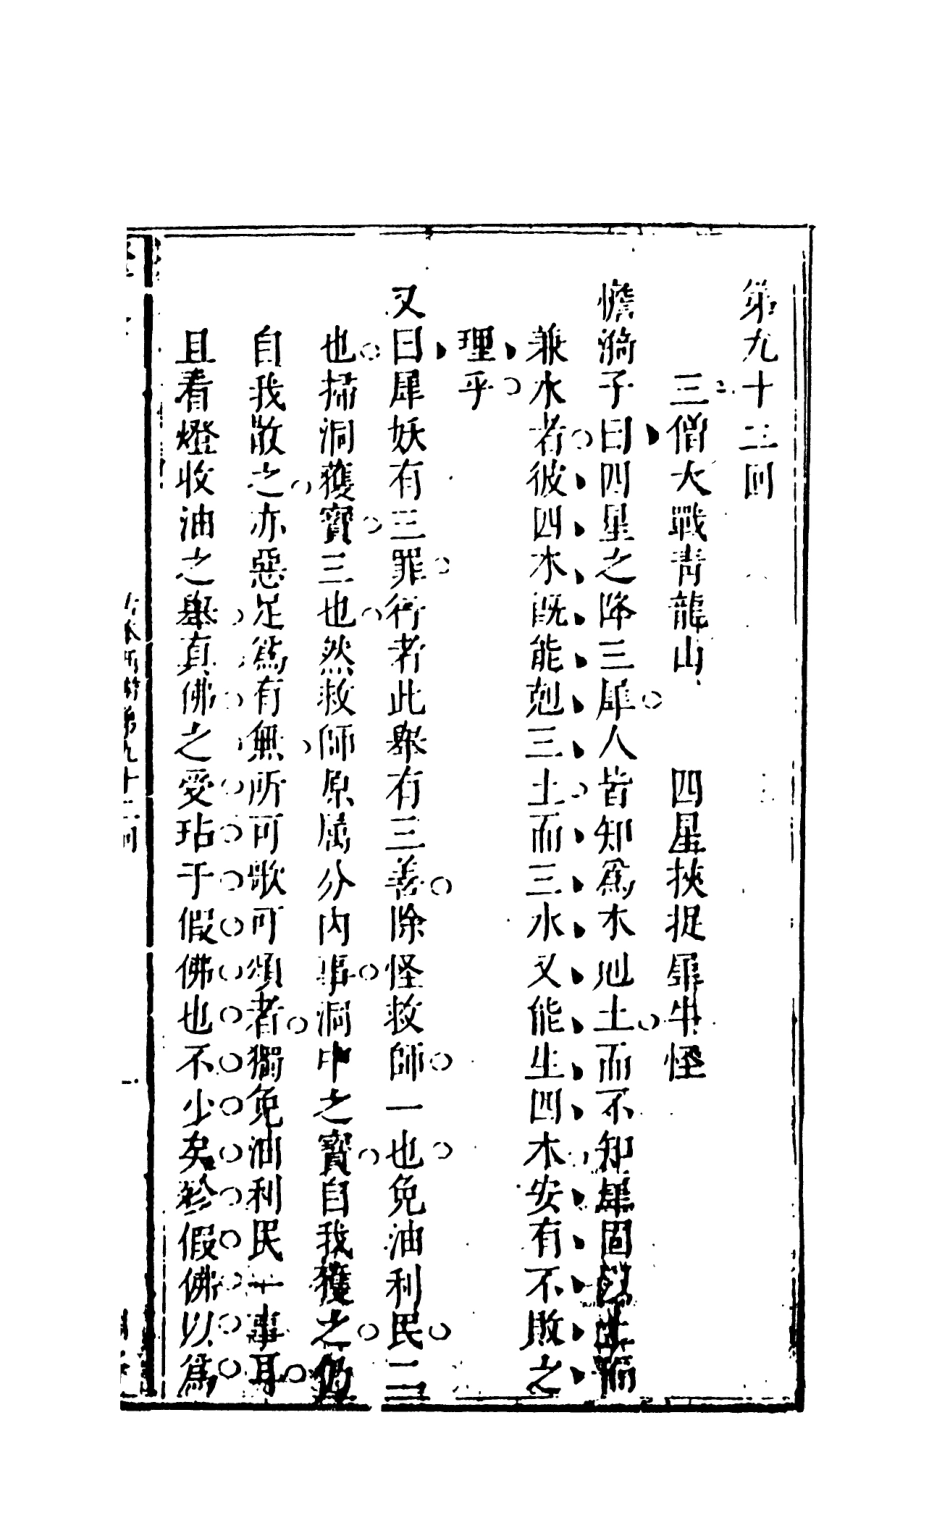 第九十二回
三僧大戰青龍山　四星挾捉犀牛怪
憺漪子曰四星之降三犀人皆知爲木尅土而不知犀固以土而
兼水者彼四木旣能尅三土而三水又能生四木安有不敗之
理乎
又曰犀妖有三罪行者此舉有三善除怪救師一也免油利民二
也掃洞獲寶三也然救師原属分內事洞中之寶自我獲之仍
自我散之亦惡足爲有無所可歌可頌者獨免油利民一事耳
且看燈收油之舉真佛之受玷于假佛也不少矣殄假佛以爲
第九十二回